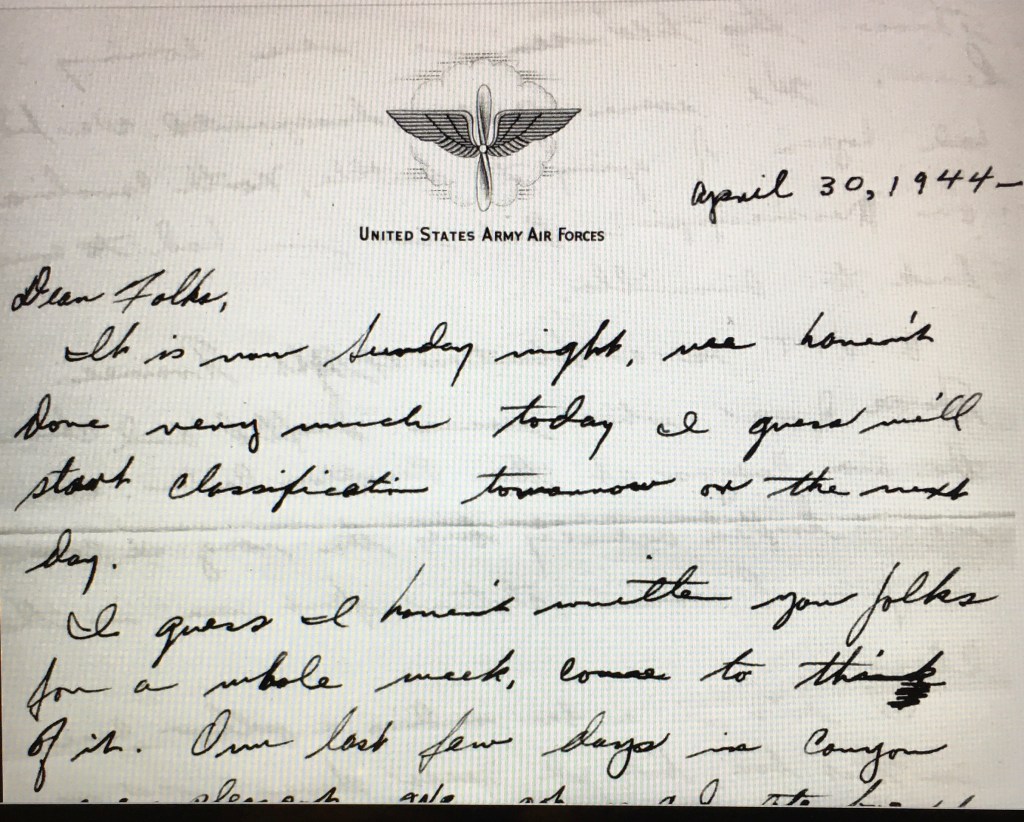 UNITED STATES ARMY AIR FORCES
April 30, 1944-
Dear Folks,
It is now Sunday night, we haven't
done very much today I guess we'll
start classification tomorrow or the next
day.
I guess I haven't written you folks
for a whole week, come to think
of it. Our last few days in Canyon